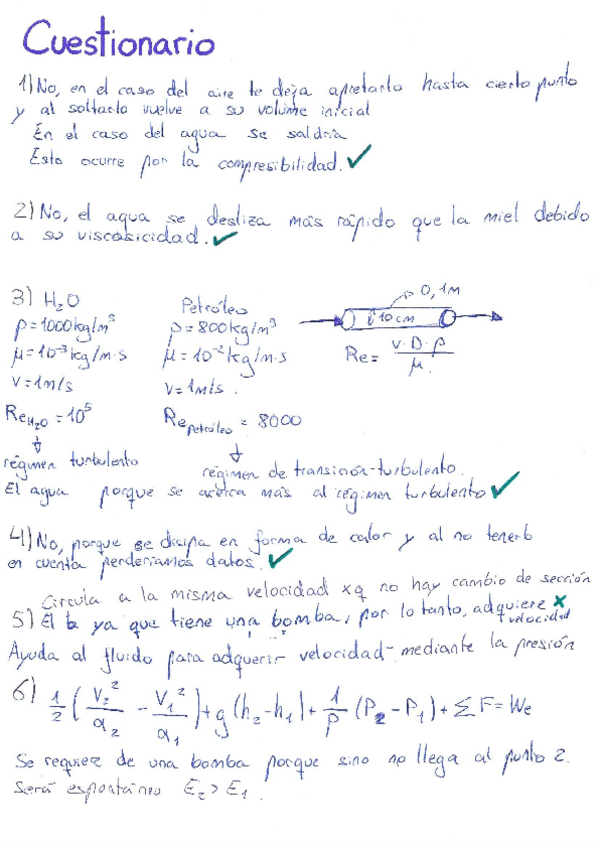 Cuestionario
1) No, en el caso del aire te deja apretarlo hasta cierto punto
y al soltarlo vuelve a su volume inicial
En el caso del agua se saldria
Esto ocurre por la compresibilidad. ✓
2) No, el agua se desliza más rápido que la miel debido
a su viscosicidad. ✓
3) H₂O
ρ = 1000 kg/m³
μ = 10⁻³ kg/m·s
v = 1 m/s
Re H₂O = 10⁵
régimen turbulento
Petróleo
ρ = 800 kg/m³
μ = 10⁻² kg/m·s
v = 1 m/s.
Re petróleo = 8000
régimen de transición-turbulento.
0,1m
10 cm
Re = v·D·ρ / μ.
El agua porque se acerca más al régimen turbulento ✓
4) No, porque se disipa en forma de calor y al no tenerlo
en cuenta perderíamos datos. ✓
Circula a la misma velocidad xq no hay cambio de sección
5) El b ya que tiene una bomba, por lo tanto, adquiere x
velocidad
Ayuda al fluido para adquerir velocidad mediante la presión
6) 1/2 (V₂²/α₂ - V₁²/α₁) + g (h₂-h₁) + 1/ρ (P₂-P₁) + ΣF = We
Se requiere de una bomba porque sino no llega al punto 2.
Será espontáneo E₂ > E₁.